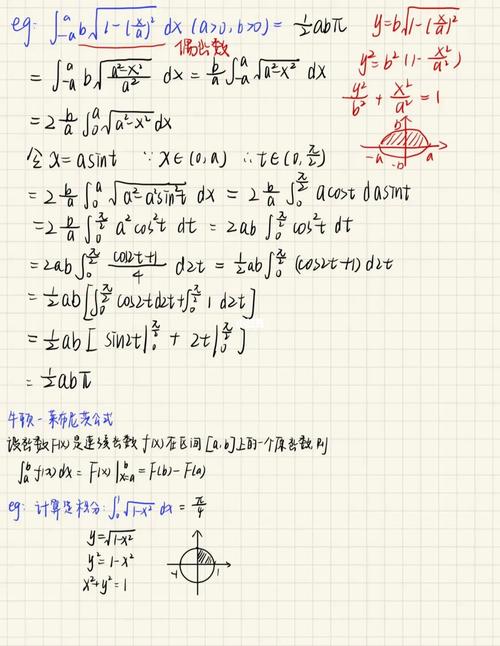 eg: ∫_{-a}^{a} b√(1-(x/a)²) dx (a>0, b>0) = ½abπ
偶函数
y=b√(1-(x/a)²)
y²=b²(1-x²/a²)
y²/b² + x²/a² = 1
b
-a a
-b
= ∫_{-a}^{a} b√((a²-x²)/a²) dx = b/a ∫_{-a}^{a} √(a²-x²) dx
= 2 b/a ∫_0^a √(a²-x²) dx
令 x=asint ∵ x∈(0,a) ∴ t∈(0,π/2)
= 2 b/a ∫_0^a √(a²-a²sin²t) dx = 2 b/a ∫_0^{π/2} acost dasint
= 2 b/a ∫_0^{π/2} a²cos²t dt = 2ab ∫_0^{π/2} cos²t dt
= 2ab ∫_0^{π/2} (cos2t+1)/4 d2t = ½ab ∫_0^{π/2} (cos2t+1) d2t
= ½ab [∫_0^{π/2} cos2td2t + ∫_0^{π/2} 1 d2t]
= ½ab [ sin2t|_0^{π/2} + 2t|_0^{π/2} ]
= ½abπ
牛顿-莱布尼茨公式
设函数F(x)是连续函数f(x)在区间[a,b]上的一个原函数 则
∫_a^b f(x)dx = F(x)|_{x=a}^b = F(b)-F(a)
eg: 计算定积分: ∫_0^1 √(1-x²) dx = π/4
y=√(1-x²)
y²=1-x²
x²+y²=1
-1 1